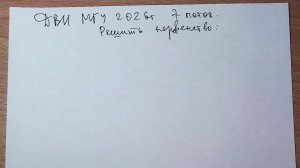 ДВИ МГУ 2026г 7 поток.
Решить неравенство: